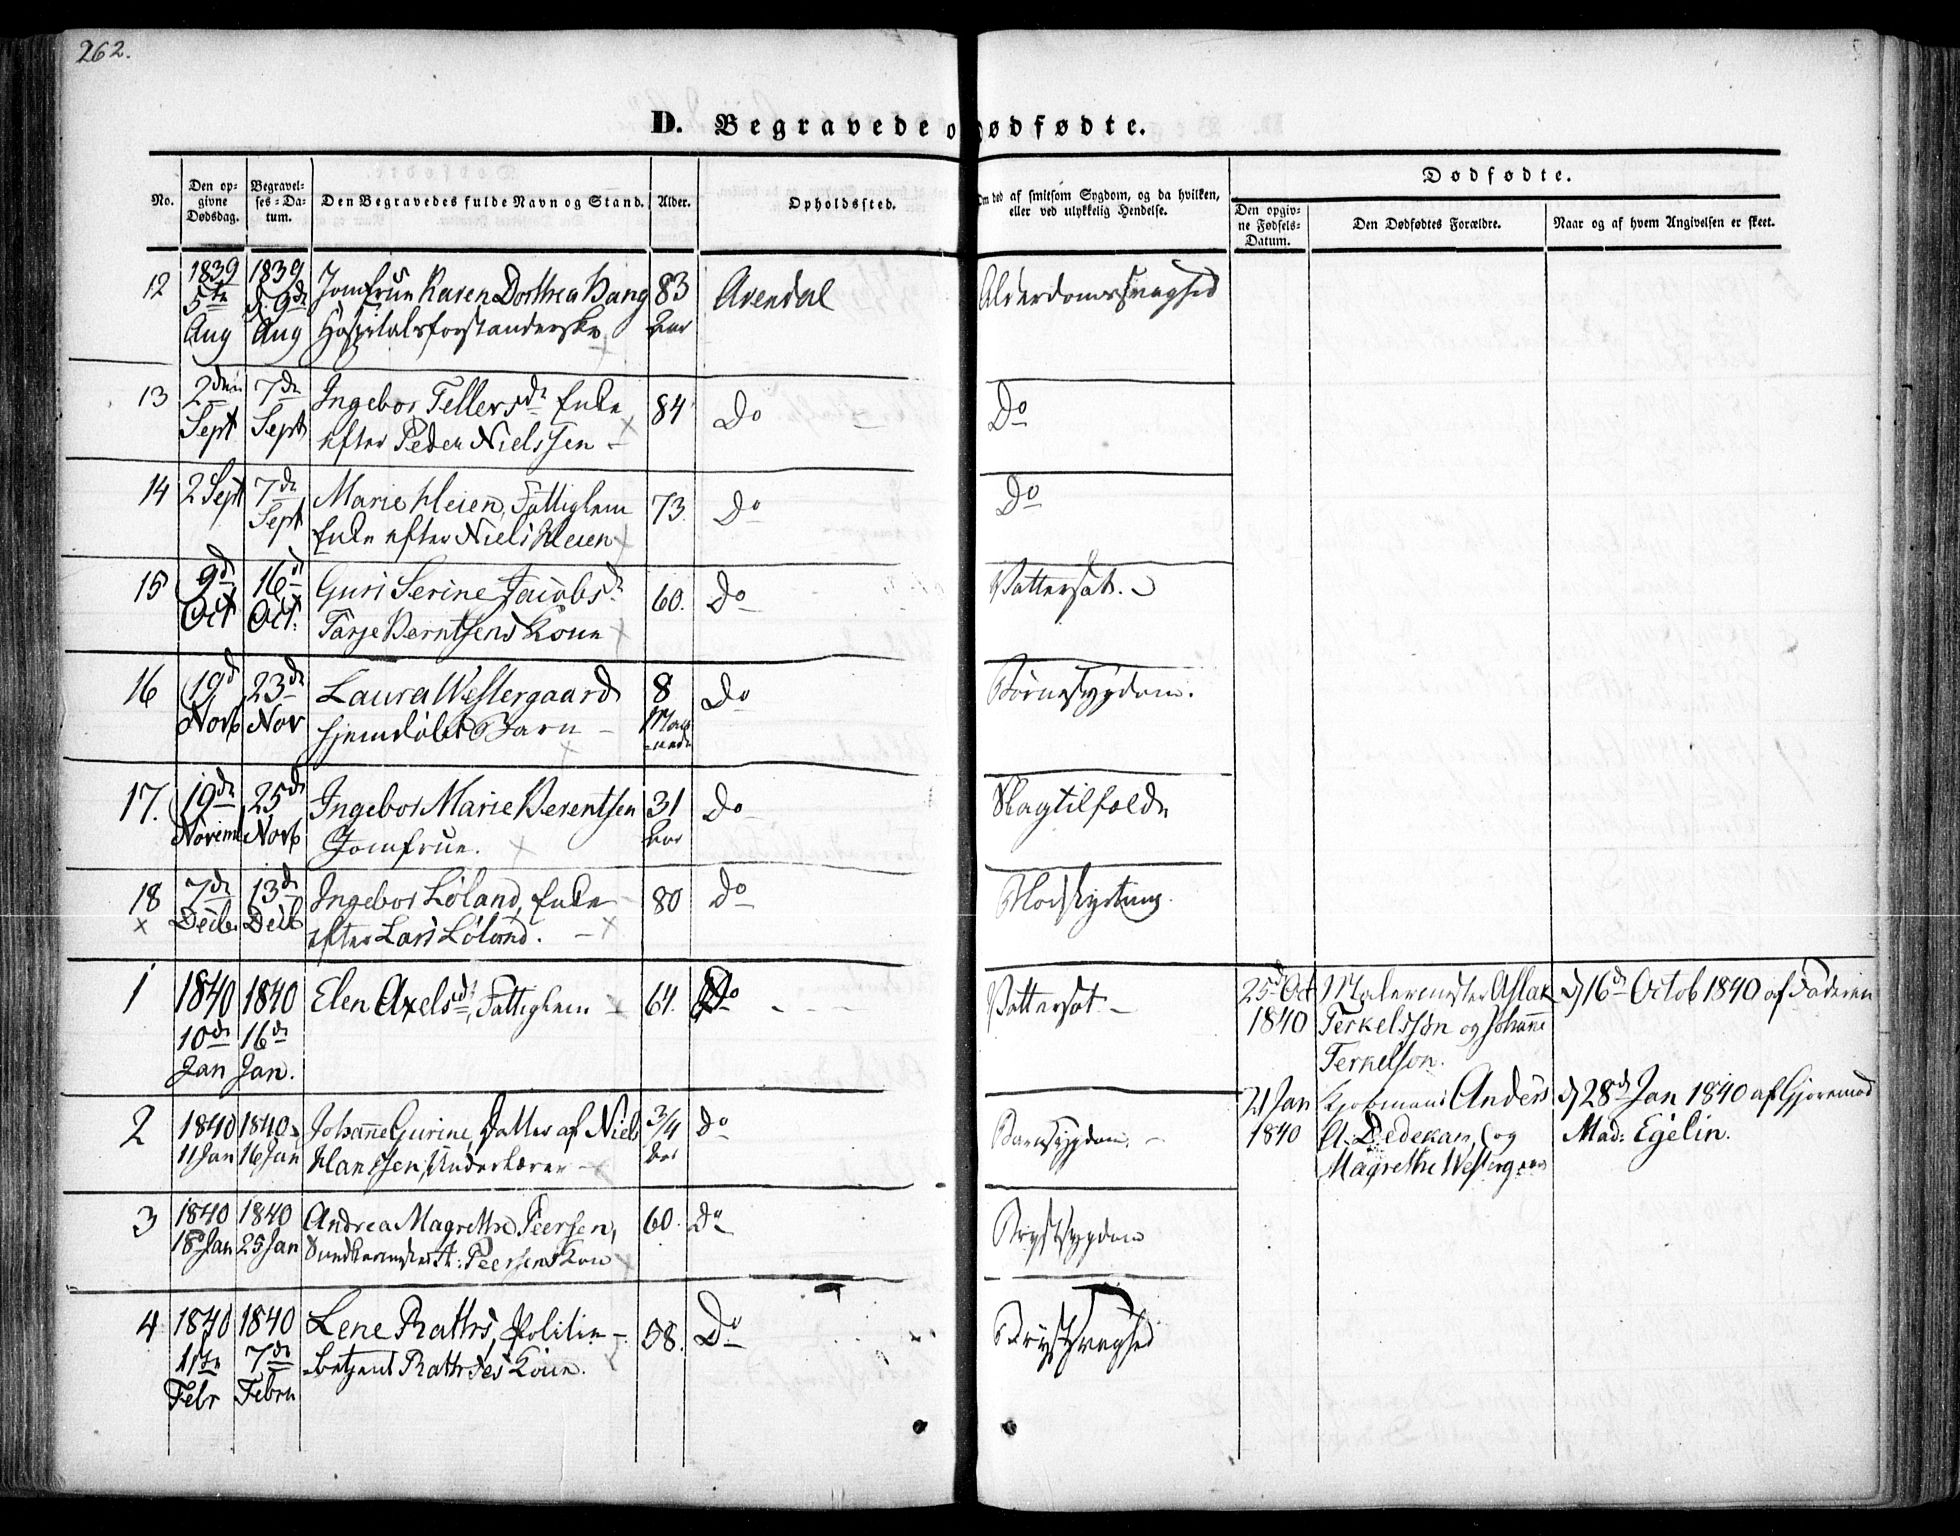 262.
D. Begravede o dødfødte.
No.
Den op-
givne
Dødsdag.
Begravel-
ses-Da-
tum.
Den Begravedes fulde Navn og Stand.
Alder.
Opholdssted.
Om død af smitsom Sygdom, og da hvilken,
eller ved ulykkelig Hendelse.
Dødfødte.
Den opgiv-
ne Fødsels-
Datum.
Den Dødfødtes Forældre.
Naar og af hvem Angivelsen er skeet.
12 1839 1839 Jomfrue Karen Dorthea Bang 83 Arendal Alderdomssvaghed
5te d 9de Hospitalsforstanderske Aar
Aug Aug
13 2den 7de Ingebor Tellersdr Enke 84 Do Do
Sept Sept efter Peder Nielssen
14 2 Sept 7de Marie Heien, Fattiglem 73. Do Do
Sept Enke efter Niels Heien
15 9d 16d Guri Serine Jacobsdr 60. Do Vattersot.
Oct Oct. Tarje Berntsens Kone
16 19d 23de Laura Westergaard 8 Do Børnesygdom.
Novb Nov Barn Maa
-neder
17. 19de 25de Ingebor Marie Berentsen 31 Do Slagtilfælde
Novemb Novb Jomfrue. Aar
18 7de 13de Ingebor Løland, Enke 80 Do
Decb. Decb efter Lars Løland.
1 1840 1840 Elen Axelsd, Fattiglem 61. Do Vattersot 25d Oct Malermester Aslak d 16de Octob 1840 af Faderen
10de 16de 1840 Terkelssøn og Johanne
Jan Jan. Terkelson.
21 Jan Kjøbmand Anders d 28de Jan 1840 af Gjoremod
2 1840 1840 Johanne Gurine, Datter af Niels 3/4 Do Barnsygdom. 1840 A. Dedekam, og Mad: Egelin.
11 Jan 16 Jan Hanssen, Underlærer Aar Magrethe Westergaard
3 1840 1840 Andrea Magrethe Peersen, 60. Do Brystsygdom
18 Jan 25 Jan Peersens Kone
4 1840 1840 Lene Rathrs, Politie- 58. Do Brystsvaghed
1ste 7de betjent Kone.
Febr Febru